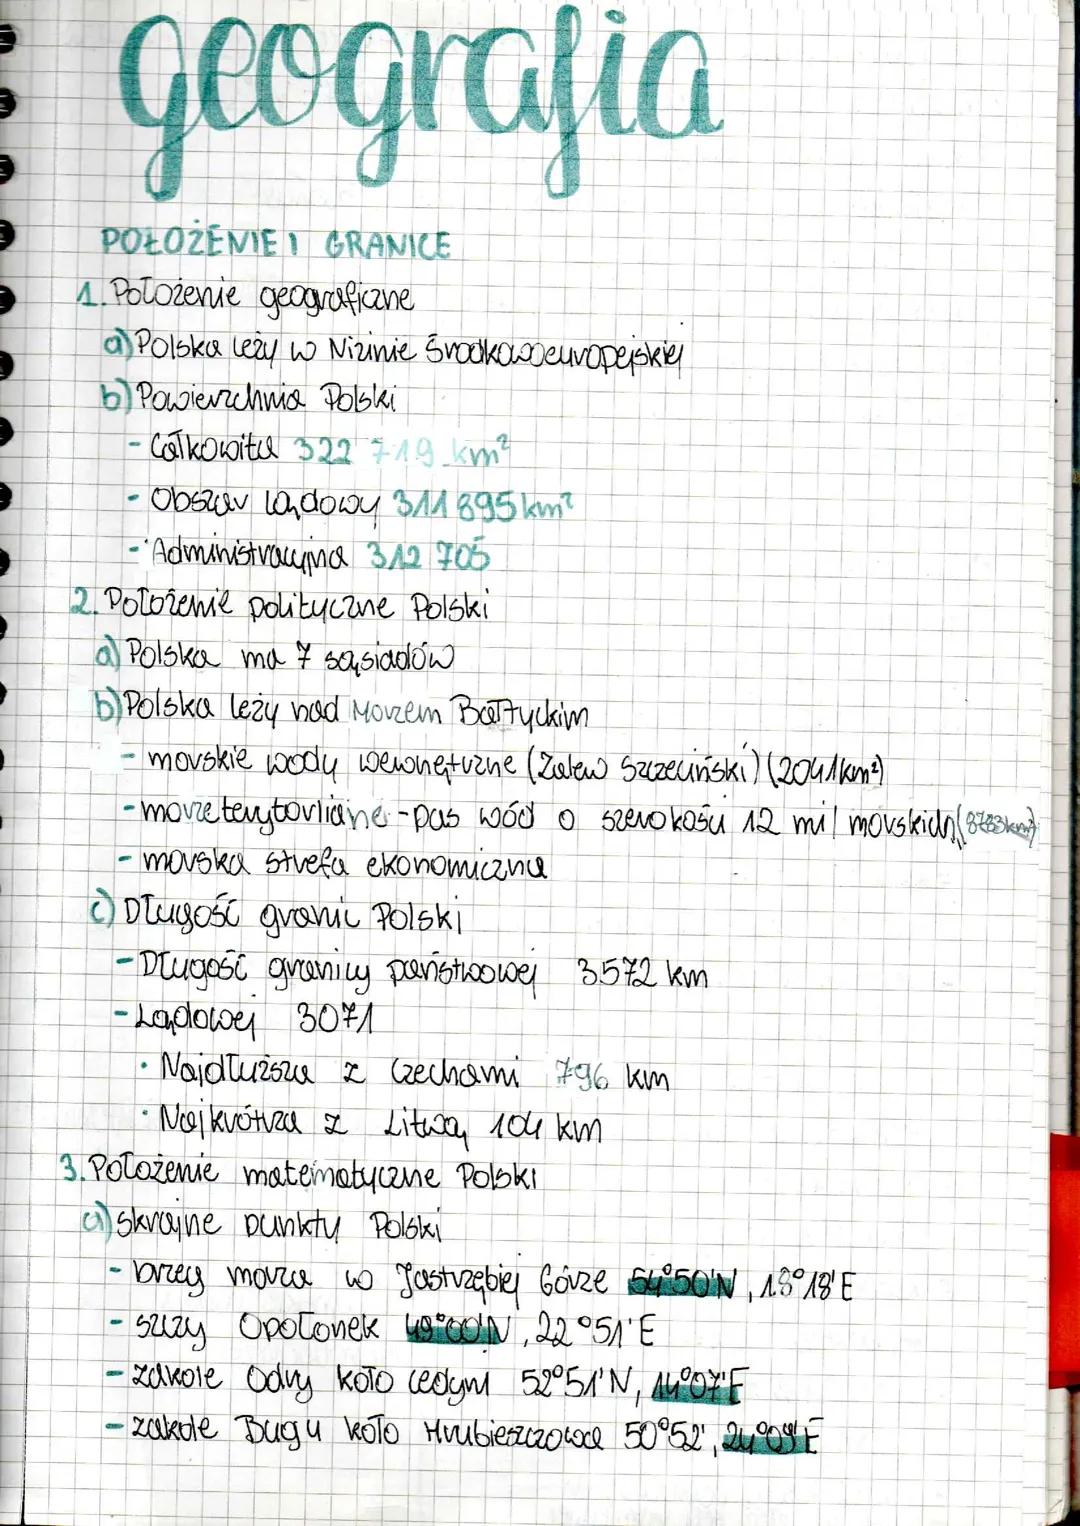 geografia
POŁOŻENIE I GRANICE
1. Położenie geograficzne
a) Polska leży w Nizinie Środkowoeuropejskiej
b) Powierzchnia Polski
- Całkowita 322 719 km²
- Obszar lądowy 311 895 km²
- Administracyjna 312 705
2. Położenie polityczne Polski
a) Polska ma 7 sąsiadów
b) Polska leży nad Morzem Bałtyckim
- morskie wody wewnętrzne (Zalew Szczeciński) (2041 km²)
- morze terytorlialne - pas wód o szerokości 12 mil morskich (8783 km²)
- morska strefa ekonomiczna
c) Długość granic Polski
- Długość granicy państwowej 3572 km
- Lądowej 3071
· Najdłuższa z Czechami 796 km
· Najkrótsza z Litwą 104 km
3. Położenie matematyczne Polski
a) skrajne punkty Polski
- brzeg morza w Jastrzębiej Górze 54°50'N, 18°18'E
- szczyt Opołonek 49°00'N, 22°51'E
- zakole Odry koło Cedyni 52°51'N, 14°07'E
- zakole Bugu koło Hrubieszowa 50°52', 24°09'E